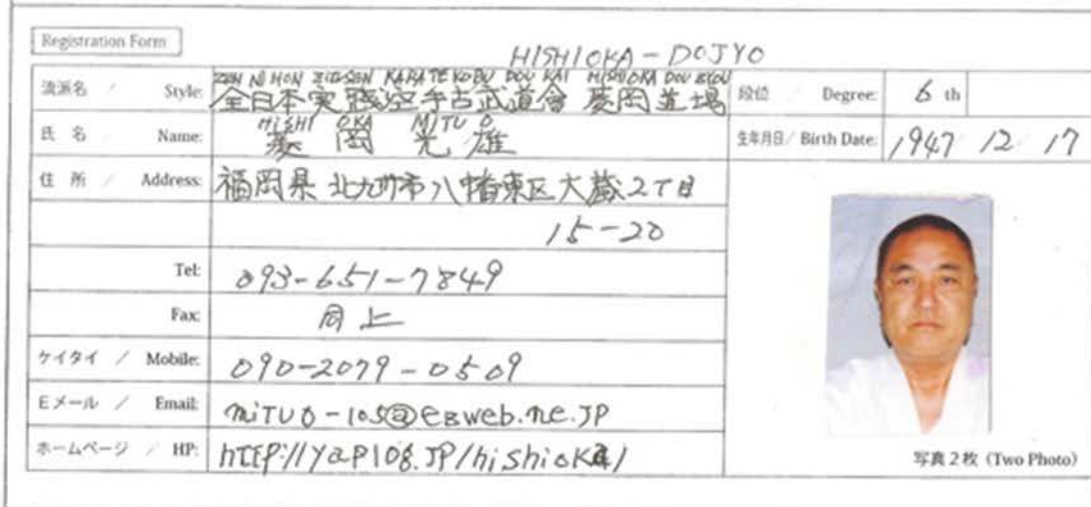 Registration Form
HISHIOKA-DOJYO
流派名 / Style: ZEN NIHON ZISSEN KARATE KOBU DOU KAI HISHIOKA DOU ZYOU
全日本実践空手古武道會 菱岡道場
段位 / Degree: 6 th
氏名 / Name: HISHI OKA MITU O
菱岡光雄
生年月日/ Birth Date: 1947 12 17
住所 / Address: 福岡県北九州市八幡東区大蔵2丁目
15-20
Tel: 093-651-7849
Fax: 同上
ケイタイ / Mobile: 090-2079-0509
Eメール / Email: miTUO-105@ezweb.ne.JP
ホームページ / HP: http://yaplog.JP/hishioka/
写真2枚 (Two Photo)